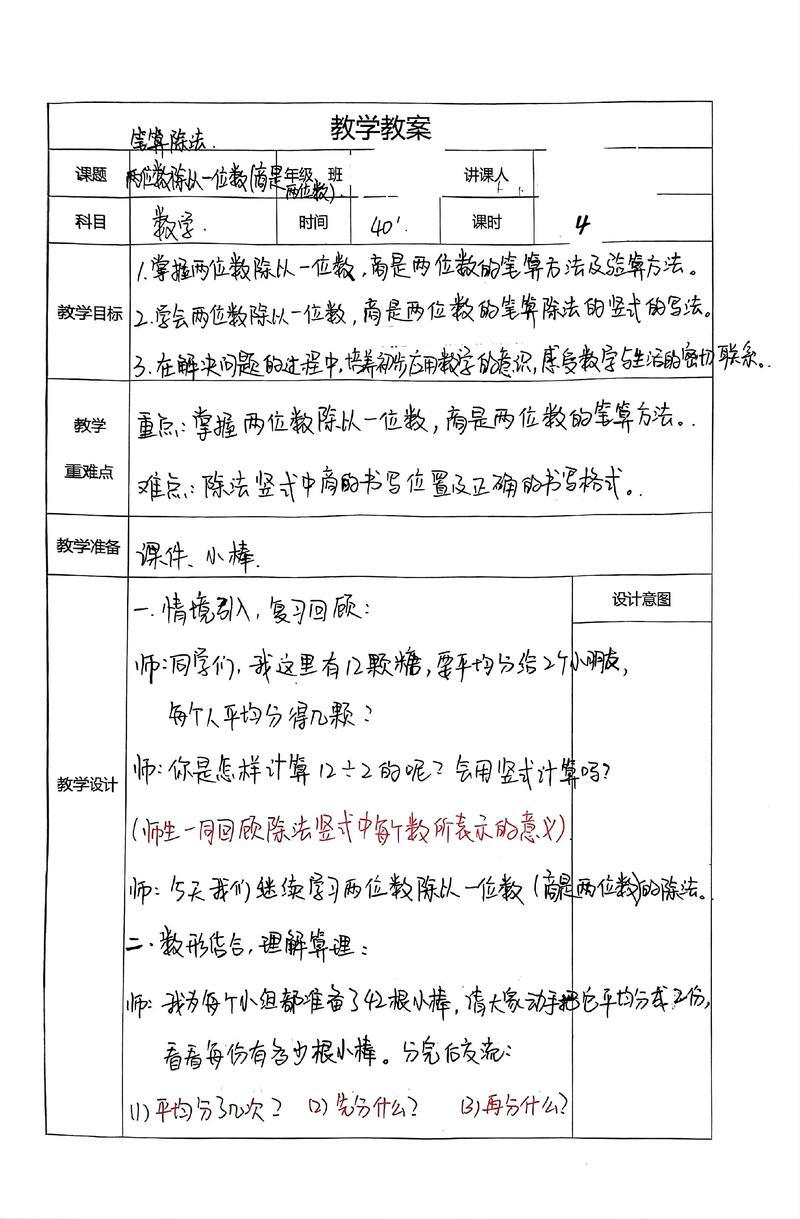 教学教案
笔算除法.
课题 两位数除以一位数(商是 年级、班 讲课人
两位数).
科目 数学. 时间 40' 课时 4
1.掌握两位数除以一位数,商是两位数的笔算方法及验算方法。
教学目标 2.学会两位数除以一位数,商是两位数的笔算除法的竖式的写法。
3.在解决问题的过程中,培养初步应用数学的意识,感受数学与生活的密切联系。
教学 重点:掌握两位数除以一位数,商是两位数的笔算方法。
重难点 难点:除法竖式中商的书写位置及正确的书写格式。
教学准备 课件、小棒.
一.情境引入,复习回顾: 设计意图
师:同学们,我这里有12颗糖,要平均分给2个小朋友,
每个人平均分得几颗?
教学设计 师:你是怎样计算12÷2的呢?会用竖式计算吗?
(师生一同回顾除法竖式中每个数所表示的意义)
师:今天我们继续学习两位数除以一位数(商是两位数)的除法。
二.数形结合,理解算理:
师:我为每个小组都准备了42根小棒,请大家动手把它平均分成2份,
看看每份有多少根小棒。分完后交流:
(1)平均分了几次? (2)先分什么? (3)再分什么?